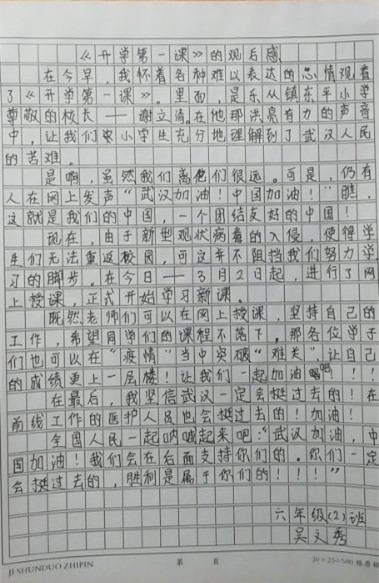 《开学第一课》的观后感
在今早，我怀着各种难以表达的心情观看
了《开学第一课》。里面，是乐从镇东平小学
尊敬的校长——谢立清。在他那洪亮有力的声音
中，让我们中小学生充分地理解到了武汉人民
的苦难。
是啊，虽然我们离他们很远。可是，仍有
人在网上发声“武汉加油！中国加油！”瞧，
这就是我们的中国，一个团结友好的中国！
现在，由于新型观状病毒的入侵，使得学
生们无法重返校园，可这并不阻挡我们努力学
习的脚步。在今日——3月2日起，进行了网
上授课，正式开始学习新课。
既然老师们可以在网上授课，坚持自己的
工作，希望同学们的课程不落下。那各位学子
们也可以在“疫情”当中突破“难关”，让自己
的成绩更上一层楼！让我们一起加油！！
在最后，我坚信武汉一定会挺过去的！在
前线工作的医护人员也会挺过去的！加油！
全国人民一起呐喊起来吧：“武汉加油，中
国加油！我们会在后面支持你们的。你们一定
会挺过去的，胜利是属于你们的！！！”
六年级(2)班
吴文秀
JI SHUNDUO ZHIPIN
第 页
20×25=500